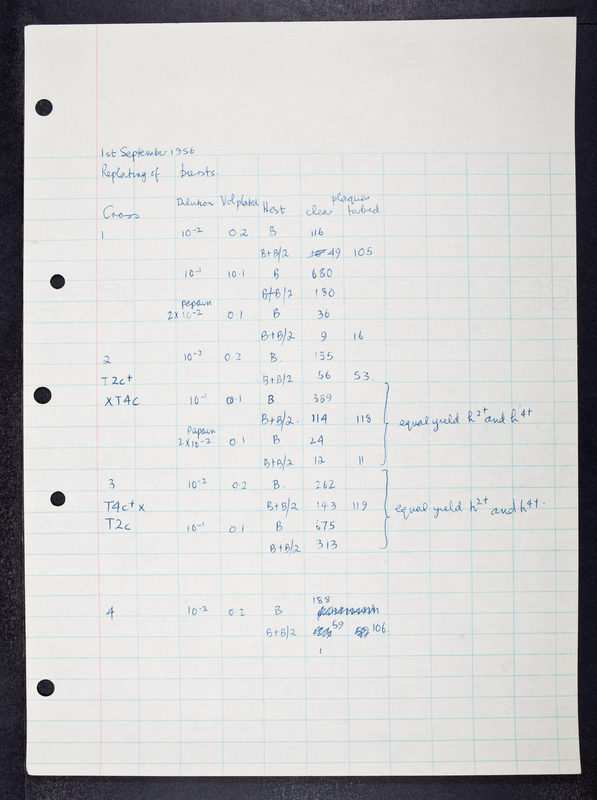 1st September 1956
Replating of bursts.
Cross Dilution Vol plated Host plaques clear turbid
1 10⁻² 0.2 B 116
B+B/2 49 105
10⁻¹ 10.1 B 680
B+B/2 180
Papain
2×10⁻² 0.1 B 36
B+B/2 9 16
2 10⁻² 0.2 B. 135
T2c⁺ B+B/2 56 53.
XT4c 10⁻¹ 0.1 B 359
B+B/2. 114 118 equal yield h²⁺ and h⁴⁺
Papain
2×10⁻² 0.1 B 24
B+B/2 12 11
3 10⁻² 0.2 B. 262
T4c⁺ x B+B/2. 143 119 equal yield h²⁺ and h⁴⁺.
T2c 10⁻¹ 0.1 B 675
B+B/2 313
188
4 10⁻² 0.2 B
B+B/2 59 106